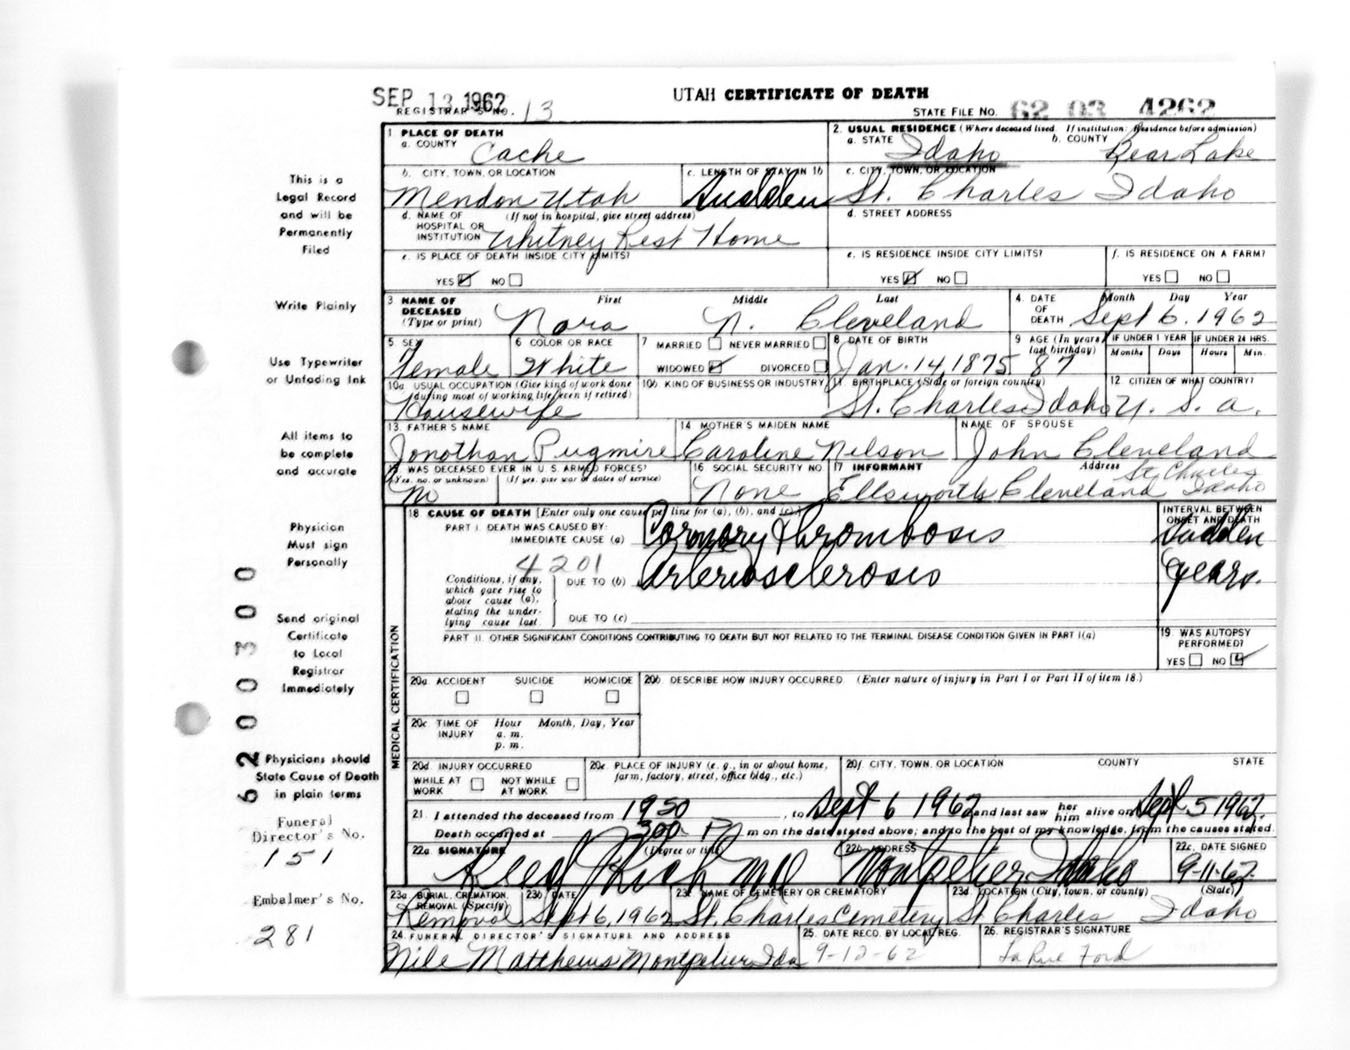 SEP 13 1962
REGISTRAR'S NO. 13
UTAH CERTIFICATE OF DEATH
STATE FILE NO. 62 03 4262
This is a
Legal Record
and will be
Permanently
Filed
Write Plainly
Use Typewriter
or Unfading Ink
All items to
be complete
and accurate
Physician
Must sign
Personally
Send original
Certificate
to Local
Registrar
Immediately
Physicians should
State Cause of Death
in plain terms
Funeral
Director's No.
151
Embalmer's No.
281
6200300
1 PLACE OF DEATH
a. COUNTY Cache
2. USUAL RESIDENCE (Where deceased lived. If institution: Residence before admission)
a. STATE Idaho b. COUNTY Bear Lake
b. CITY, TOWN, OR LOCATION Mendon Utah
c. LENGTH OF STAY IN 1b Sudden
c. CITY, TOWN, OR LOCATION St. Charles Idaho
d. NAME OF HOSPITAL OR INSTITUTION (If not in hospital, give street address) Whitney Rest Home
d. STREET ADDRESS
e. IS PLACE OF DEATH INSIDE CITY LIMITS?
YES NO
e. IS RESIDENCE INSIDE CITY LIMITS?
YES NO
f. IS RESIDENCE ON A FARM?
YES NO
3 NAME OF DECEASED (Type or print) First Middle Last
Nora N. Cleveland
4. DATE OF DEATH Month Day Year
Sept 6. 1962
5 SEX Female
6 COLOR OR RACE White
7 MARRIED NEVER MARRIED
WIDOWED DIVORCED
8 DATE OF BIRTH Jan. 14, 1875
9 AGE (In years last birthday) 87
IF UNDER 1 YEAR Months Days
IF UNDER 24 HRS. Hours Min.
10a USUAL OCCUPATION (Give kind of work done during most of working life, even if retired)
Housewife
10b KIND OF BUSINESS OR INDUSTRY
11 BIRTHPLACE (State or foreign country)
St. Charles Idaho
12 CITIZEN OF WHAT COUNTRY?
U. S. A.
13 FATHER'S NAME
Jonothan Pugmire
14 MOTHER'S MAIDEN NAME
Caroline Nilson
NAME OF SPOUSE
John Cleveland
15 WAS DECEASED EVER IN U. S. ARMED FORCES?
(Yes, no, or unknown) (If yes, give war or dates of service)
No
16 SOCIAL SECURITY NO.
None
17 INFORMANT Address
Ellsworth Cleveland St. Charles Idaho
MEDICAL CERTIFICATION
18 CAUSE OF DEATH [Enter only one cause per line for (a), (b), and (c).]
INTERVAL BETWEEN ONSET AND DEATH
PART I. DEATH WAS CAUSED BY:
IMMEDIATE CAUSE (a) Coronary Thrombosis Sudden
4201
Conditions, if any, which gave rise to above cause (a), stating the underlying cause last.
DUE TO (b) Arteriosclerosis years.
DUE TO (c)
PART II. OTHER SIGNIFICANT CONDITIONS CONTRIBUTING TO DEATH BUT NOT RELATED TO THE TERMINAL DISEASE CONDITION GIVEN IN PART I(a)
19. WAS AUTOPSY PERFORMED?
YES NO
20a. ACCIDENT SUICIDE HOMICIDE
20b. DESCRIBE HOW INJURY OCCURRED (Enter nature of injury in Part I or Part II of item 18.)
20c. TIME OF INJURY Hour Month, Day, Year
a. m.
p. m.
20d. INJURY OCCURRED
WHILE AT WORK NOT WHILE AT WORK
20e. PLACE OF INJURY (e. g., in or about home, farm, factory, street, office bldg., etc.)
20f. CITY, TOWN, OR LOCATION COUNTY STATE
21. I attended the deceased from 1950, to Sept 6 1962 and last saw her him alive on Sept 5 1962.
Death occurred at 300 P m on the date stated above; and to the best of my knowledge, from the causes stated.
22a. SIGNATURE (Degree or title)
Reed J Rich MD
22b. ADDRESS
Montpelier Idaho
22c. DATE SIGNED
9-11-62
23a BURIAL, CREMATION, REMOVAL (Specify)
Removal
23b DATE
Sept 6, 1962
23c NAME OF CEMETERY OR CREMATORY
St. Charles Cemetery
23d. LOCATION (City, town, or county) (State)
St Charles Idaho
24. FUNERAL DIRECTOR'S SIGNATURE AND ADDRESS
Nile Matthews Montpelier Ida
25. DATE RECD. BY LOCAL REG.
9-12-62
26. REGISTRAR'S SIGNATURE
La Rue Ford